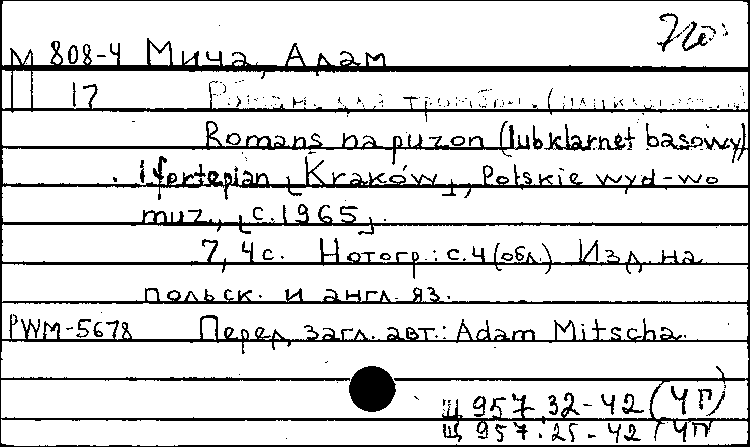 М 808-4 Мича, Адам
17
Роман. для тромбон.
Romans na puzon (lub klarnet basowy)
i fortepian [Kraków], Polskie wyd-wo
muz., [c.1965].
7, 4 с. Нотогр.: с.4 (обл.) Изд. на
польск. и англ. яз.
PWM-5678 Перед загл. авт.: Adam Mitscha.
Щ 957.32-42 (4П)
Щ 957.25-42 (4П)